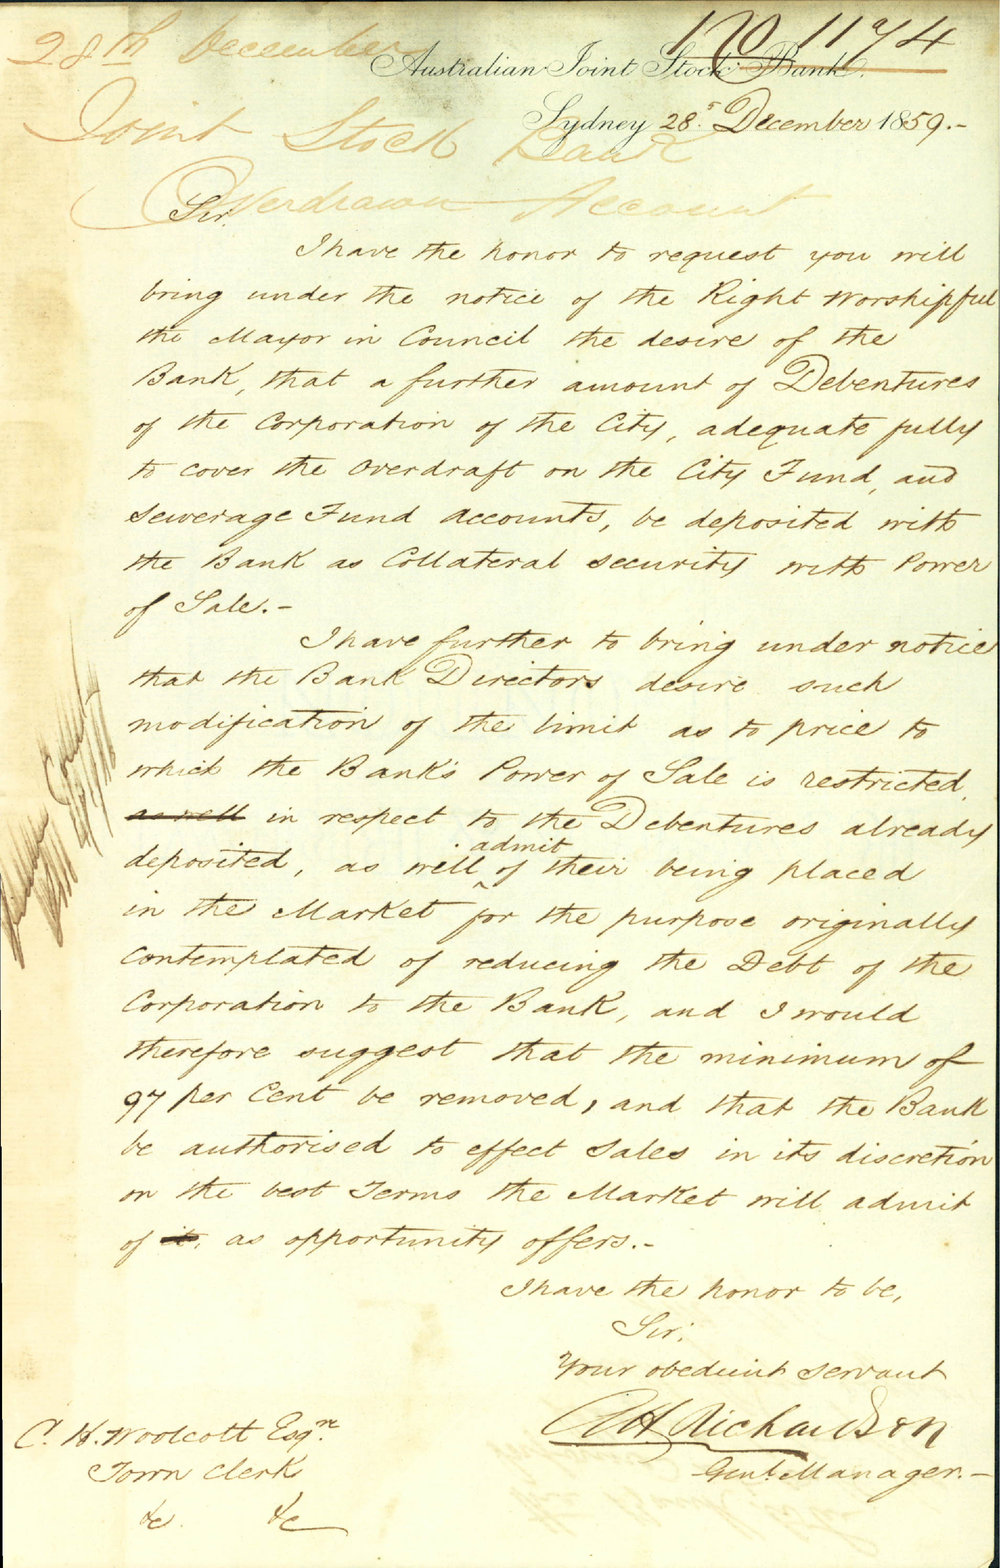 28th December
No 1174
Australian Joint Stock Bank.
Joint Stock Bank
Sydney 28th December 1859.-
Overdrawn Account
Sir.
I have the honor to request you will
bring under the notice of the Right Worshipful
the Mayor in Council the desire of the
Bank, that a further amount of Debentures
of the Corporation of the City, adequate fully
to cover the Overdraft on the City Fund, and
Sewerage Fund Accounts, be deposited with
the Bank as Collateral security with Power
of Sale.-
I have further to bring under notice
that the Bank Directors desire such
modification of the limit as to price to
which the Bank's Power of Sale is restricted,
as well in respect to the Debentures already
deposited, as will admit of their being placed
in the Market for the purpose originally
contemplated of reducing the Debt of the
Corporation to the Bank, and I would
therefore suggest that the minimum of
97 per Cent be removed, and that the Bank
be authorised to effect Sales in its discretion
on the best Terms the Market will admit
of it, as opportunity offers.-
I have the honor to be,
Sir,
Your obedient servant
Richardson
Genl. Manager.-
C. H. Woolcott Esqre
Town Clerk
&c &c